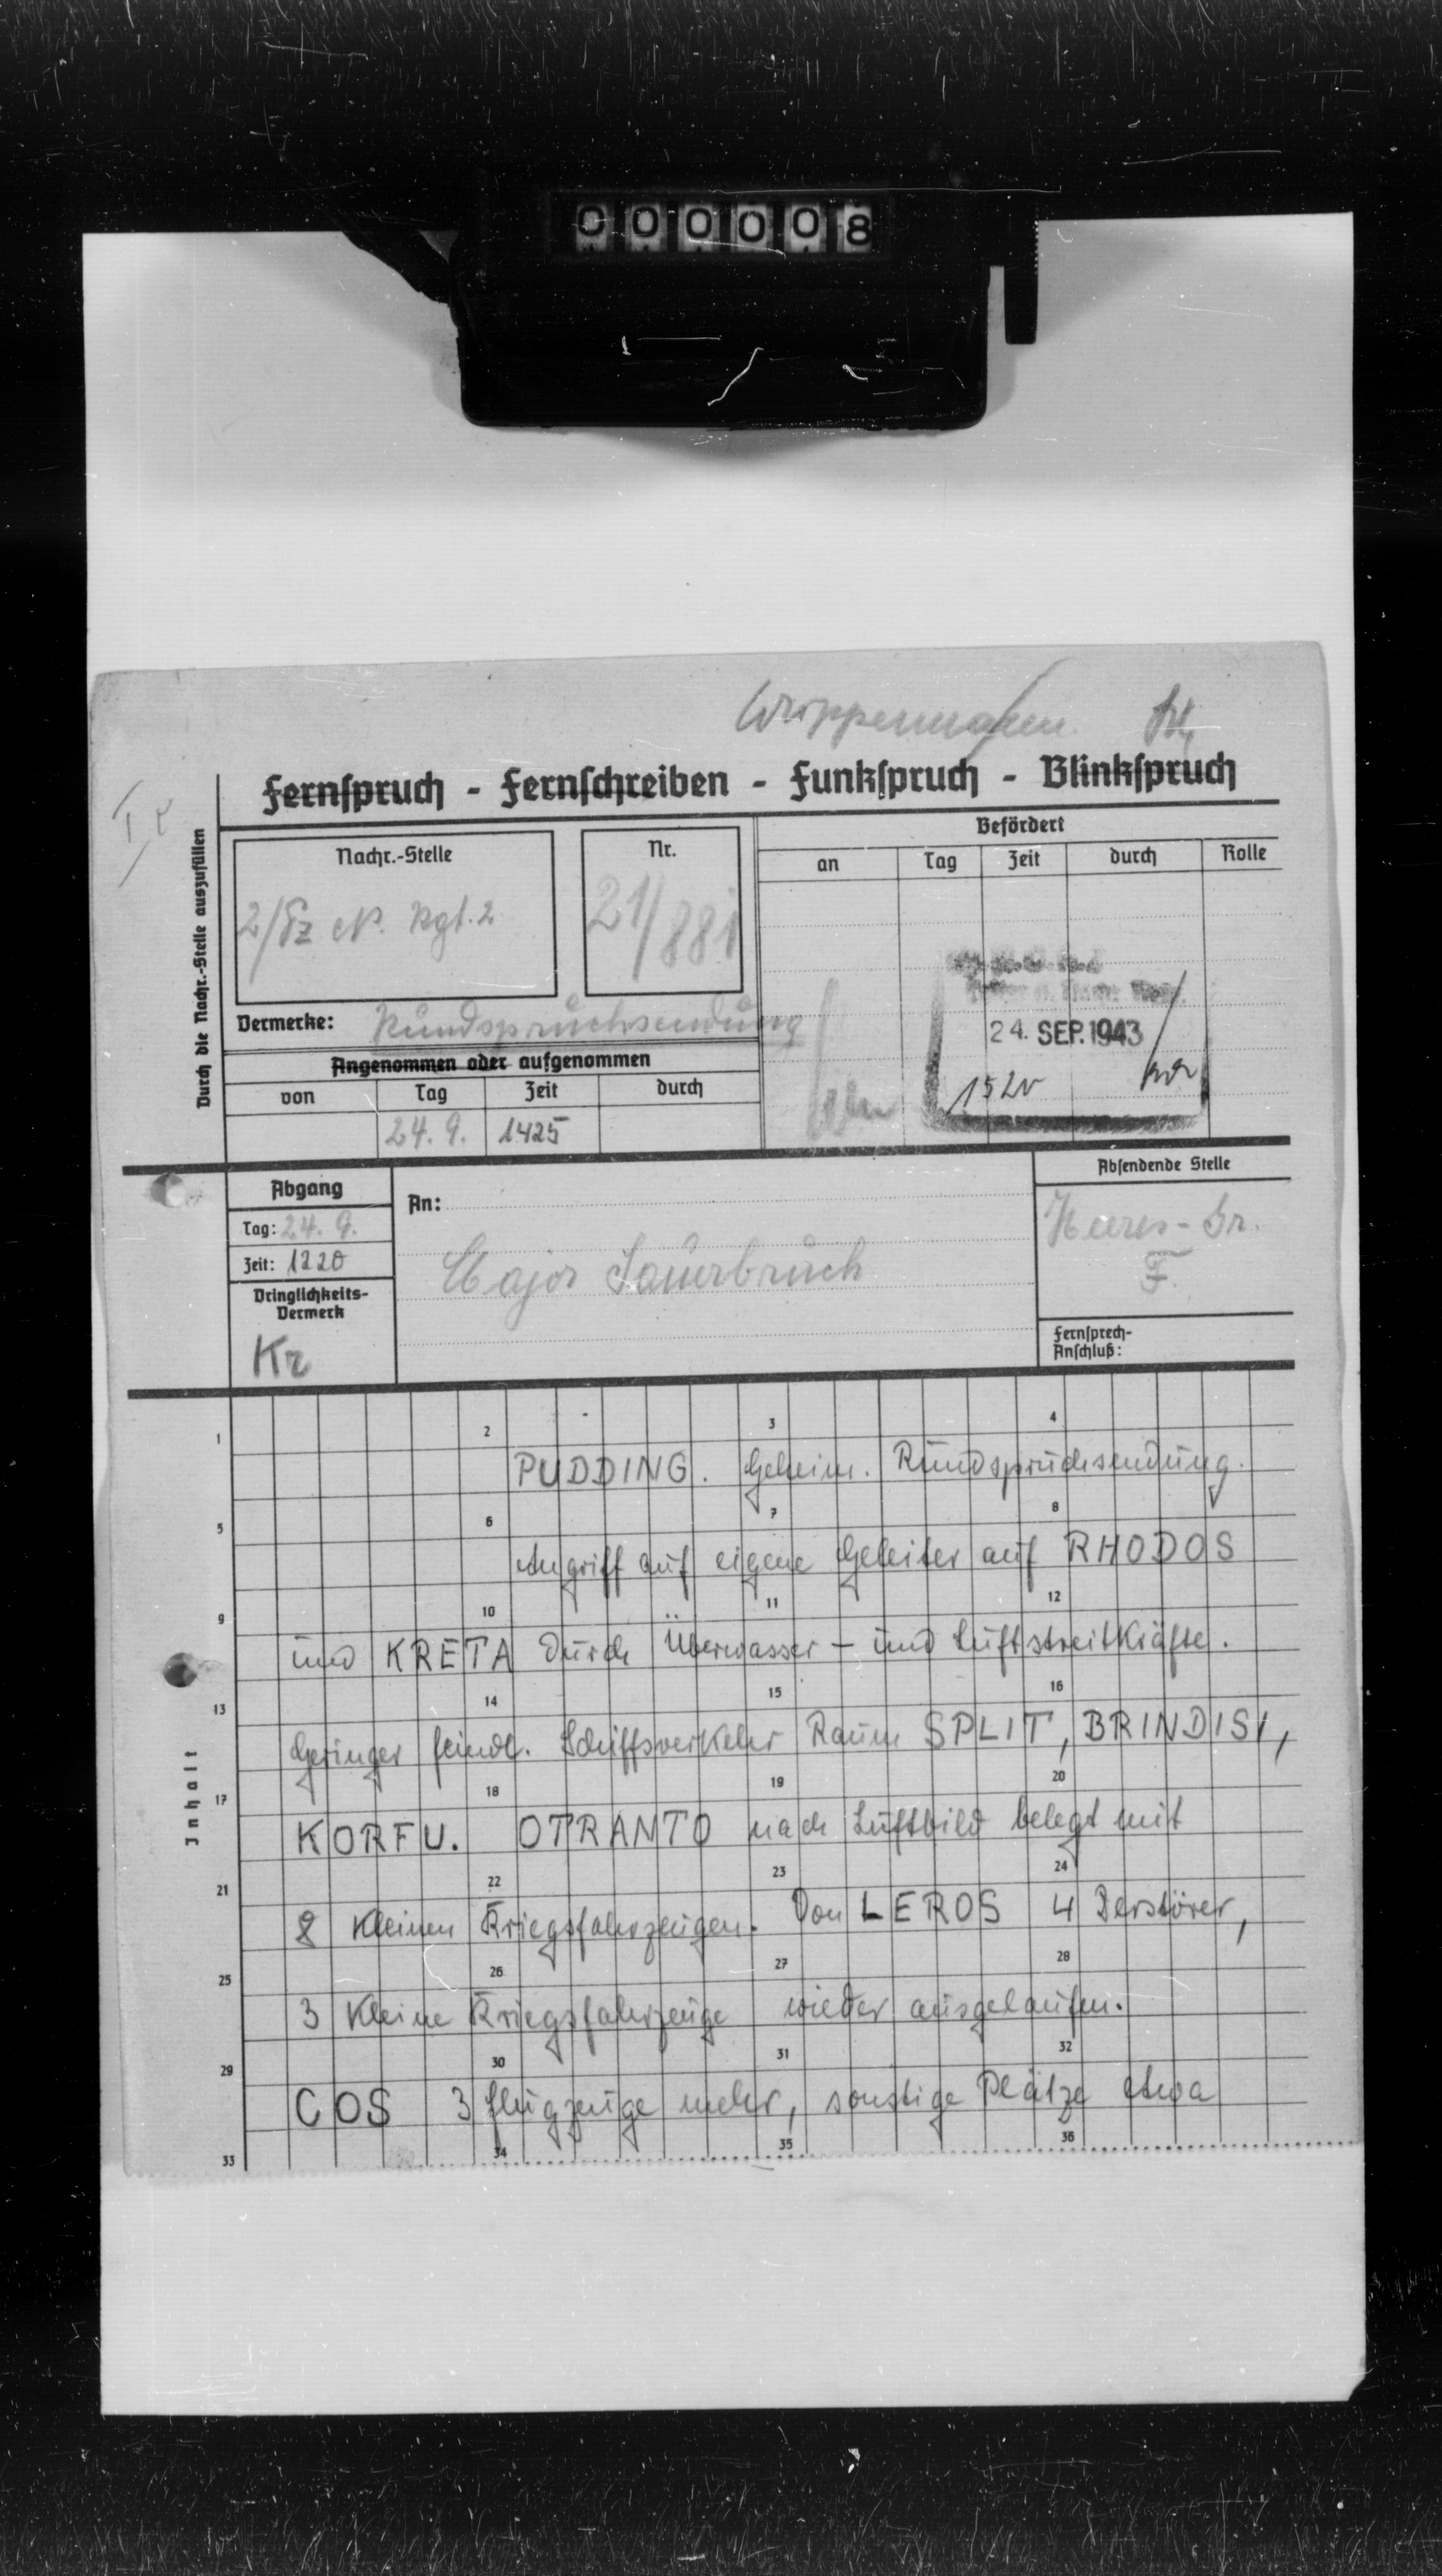 000008
Wrippermann
Fernspruch - Fernschreiben - Funkspruch - Blinkspruch
Durch die Nachr.-Stelle auszufüllen
Nachr.-Stelle
2/Pz N. Rgt. 2
Nr.
21/881
Befördert
an Tag Zeit durch Rolle
Vermerke: Rundspruchsendung
24. SEP. 1943
Angenommen oder aufgenommen
von Tag Zeit durch
24. 9. 1425
Abgang
Tag: 24. 9.
Zeit: 1220
Dringlichkeits-
Vermerk
Kr
An:
Major Sauerbruch
Absendende Stelle
Heres-Gr.
F.
Fernsprech-
Anschluß:
Inhalt
1 2 3 4
PUDDING. Geheim. Rundspruchsendung.
5 6 7 8
Angriff auf eigene Geleiter auf RHODOS
9 10 11 12
und KRETA durch Überwasser- und Luftstreitkräfte.
13 14 15 16
Geringer feindl. Schiffsverkehr Raum SPLIT, BRINDISI,
17 18 19 20
KORFU. OTRANTO nach Luftbild belegt mit
21 22 23 24
8 kleinen Kriegsfahrzeugen. Von LEROS 4 Zerstörer,
25 26 27 28
3 kleine Kriegsfahrzeuge wieder ausgelaufen.
29 30 31 32
COS 3 Flugzeuge mehr, sonstige Plätze etwa
33 34 35 36